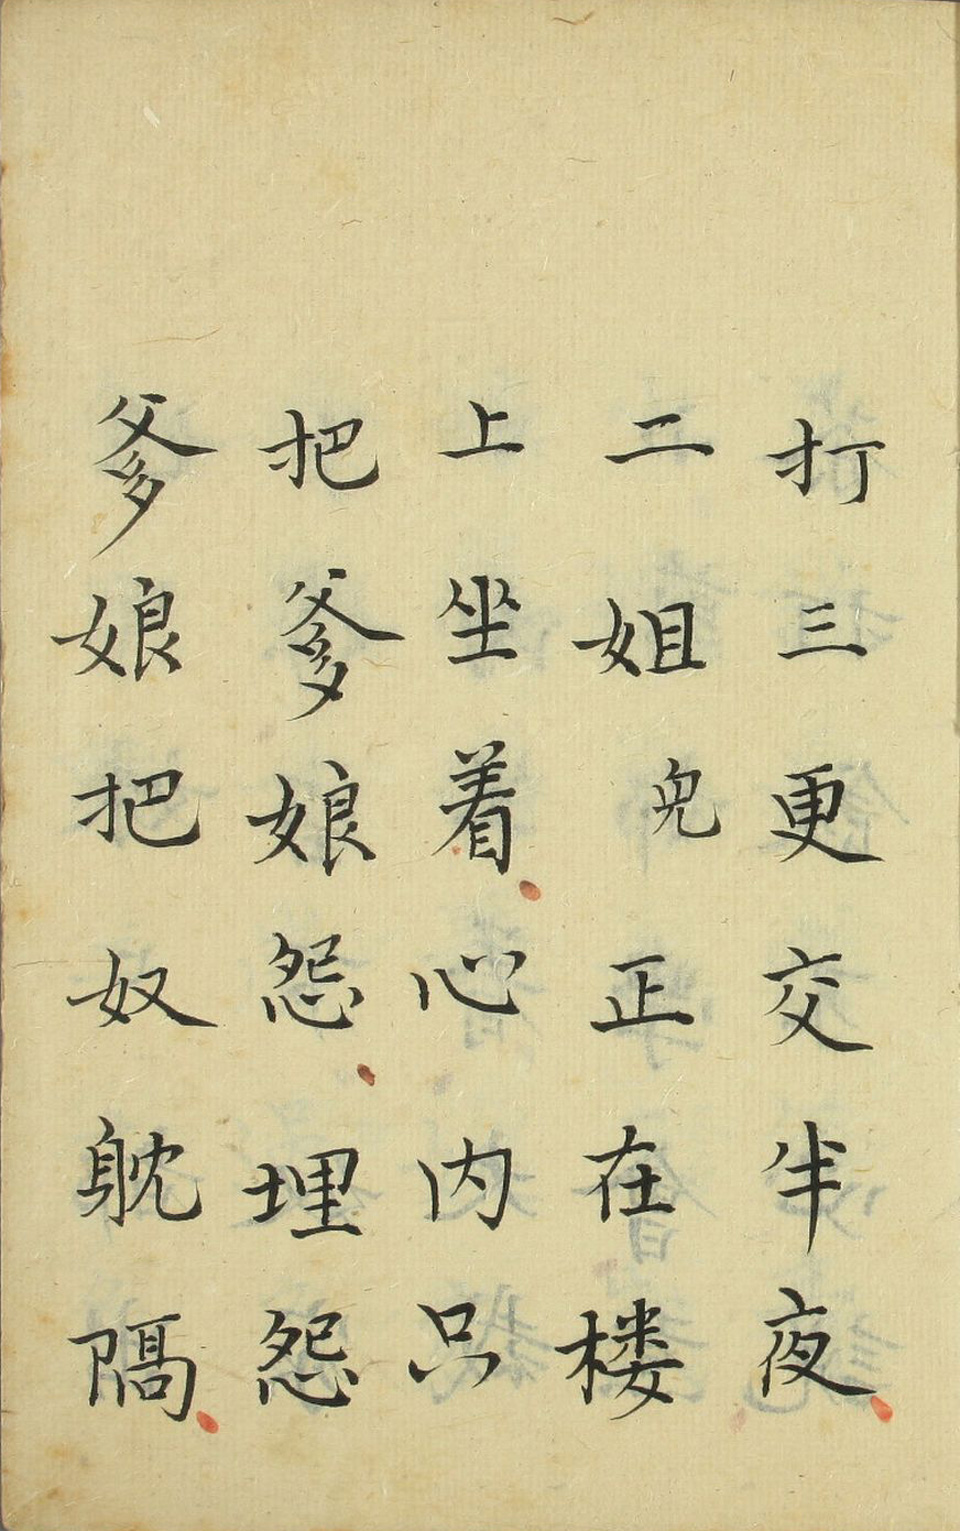 打三更交半夜
二姐兒正在楼
上坐着心内只
把爹娘怨埋怨
爹娘把奴躭隔